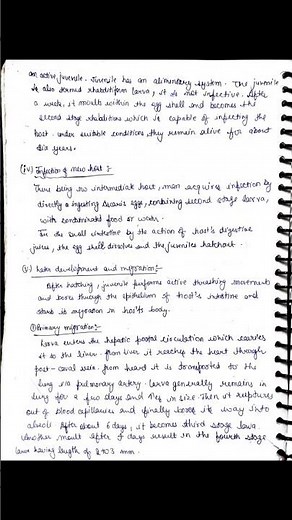 an active juvenile. Juvenile has an alimentary system. The juvenile
is also termed rhabditiform larva, it is not infective. After
a week, it moults within the egg shell and becomes the
second stage rhabditiform which is capable of infecting the
host. under suitable conditions they remain alive for about
six years.
(iv) Infection of new host :-
There being no intermediate host, man acquires infection by
directly ingesting Ascaris eggs, containing second stage larva,
with contaminated food or water.
In the small intestine by the action of host's digestive
juices, the egg shell dissolves and the juveniles hatchout.
(v) Later development and migration :-
After hatching, juvenile performs active thrashing movements
and bores through the epithelium of host's intestine and
starts its migration in host's body.
(1) Primary migration :-
Larva enters the hepatic portal circulation which carries
it to the liver. from liver it reaches the heart through
post-caval vein. from heart it is transported to the
lung via pulmonary artery. Larva generally remains in
lung for a few days and in size. Then it ruptures
out of blood capillaries and finally bores its way into
alveoli. After about 5 days, it becomes third stage larva.
Another moult after days result in the fourth stage
larva having length of 2 to 3 mm.